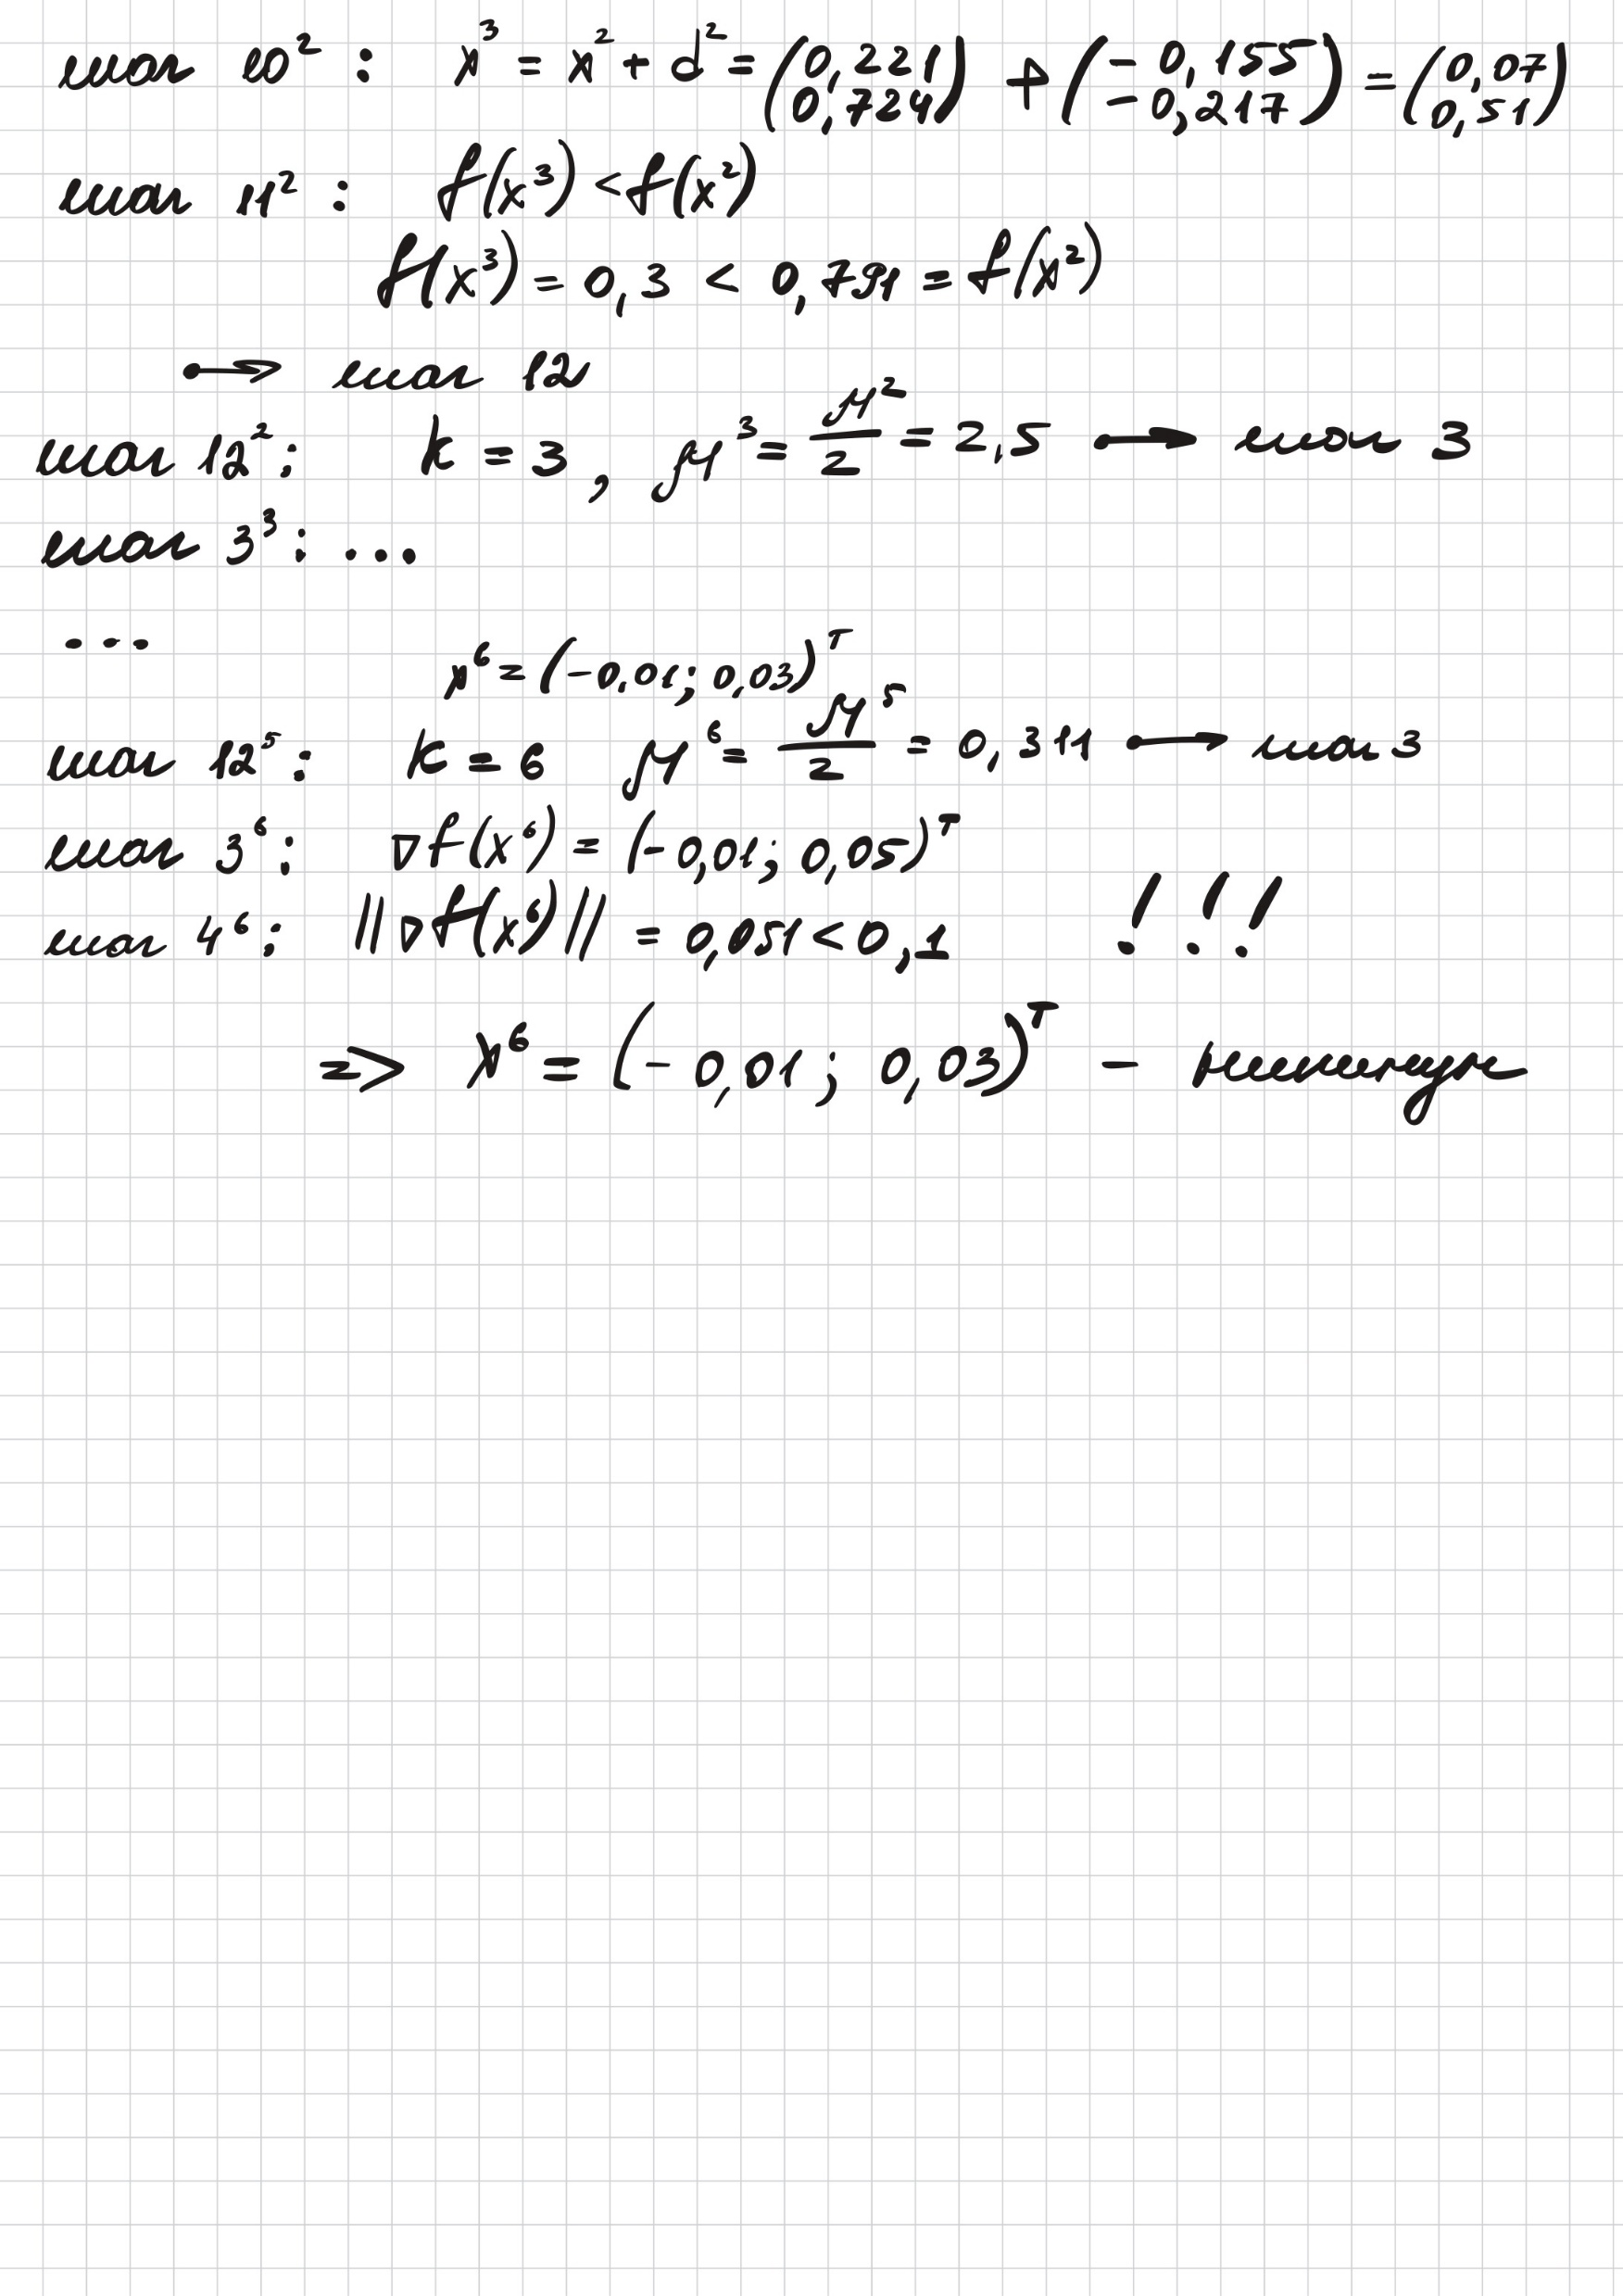 шаг 10² : x³ = x² + d² = (0,221 0,724) + (-0,155 -0,217) = (0,07 0,51)
шаг 11² : f(x³) < f(x²)
f(x³) = 0,3 < 0,791 = f(x²)
→ шаг 12
шаг 12² : k = 3 , μ³ = μ²/2 = 2,5 → шаг 3
шаг 3³ : ...
...
x⁶ = (-0,01; 0,03)ᵀ
шаг 12⁵ : k = 6 μ⁶ = μ⁵/2 = 0,311 → шаг 3
шаг 3⁶ : ∇f(x⁶) = (-0,01; 0,05)ᵀ
шаг 4⁶ : ||∇f(x⁶)|| = 0,051 < 0,1 !!!
=> x⁶ = (-0,01 ; 0,03)ᵀ - минимум